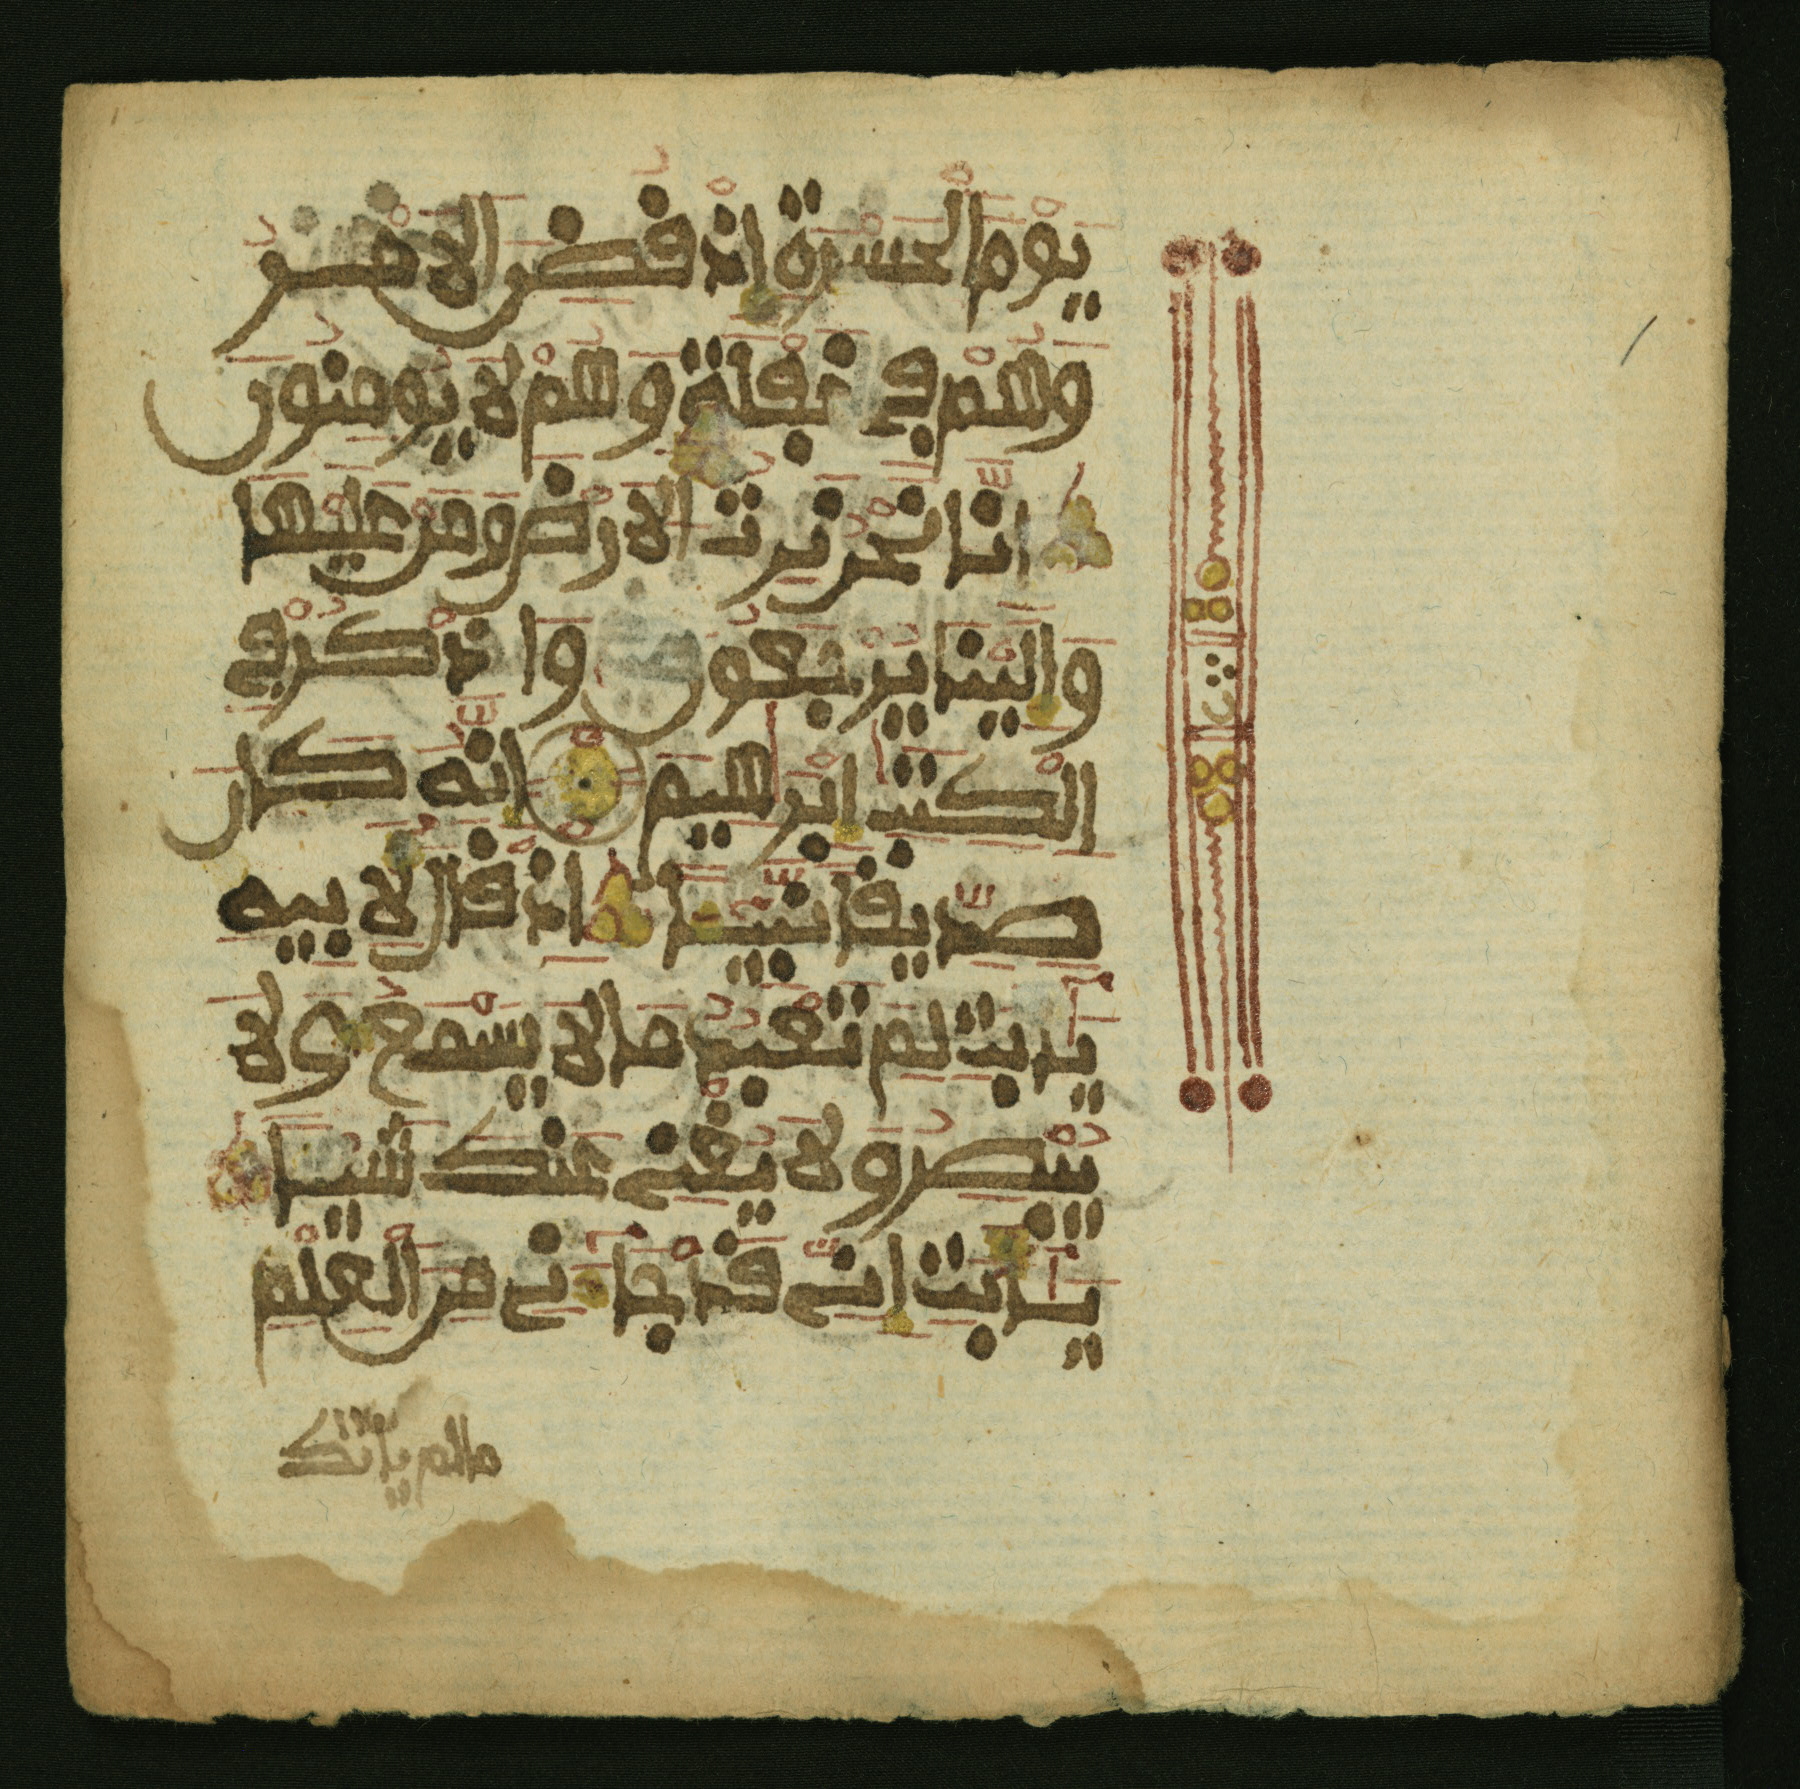 يوم الحسرة اذ قضى الامر
وهم في غفلة وهم لا يومنون
انا نحن نرث الارض ومن عليها
والينا يرجعون واذكر في
الكتب ابرهيم انه كان
صديقا نبيا اذ قال لابيه
يابت لم تعبد ما لا يسمع ولا
يبصر ولا يغني عنك شيا
يابت اني قد جاني من العلم
ما لم ياتك